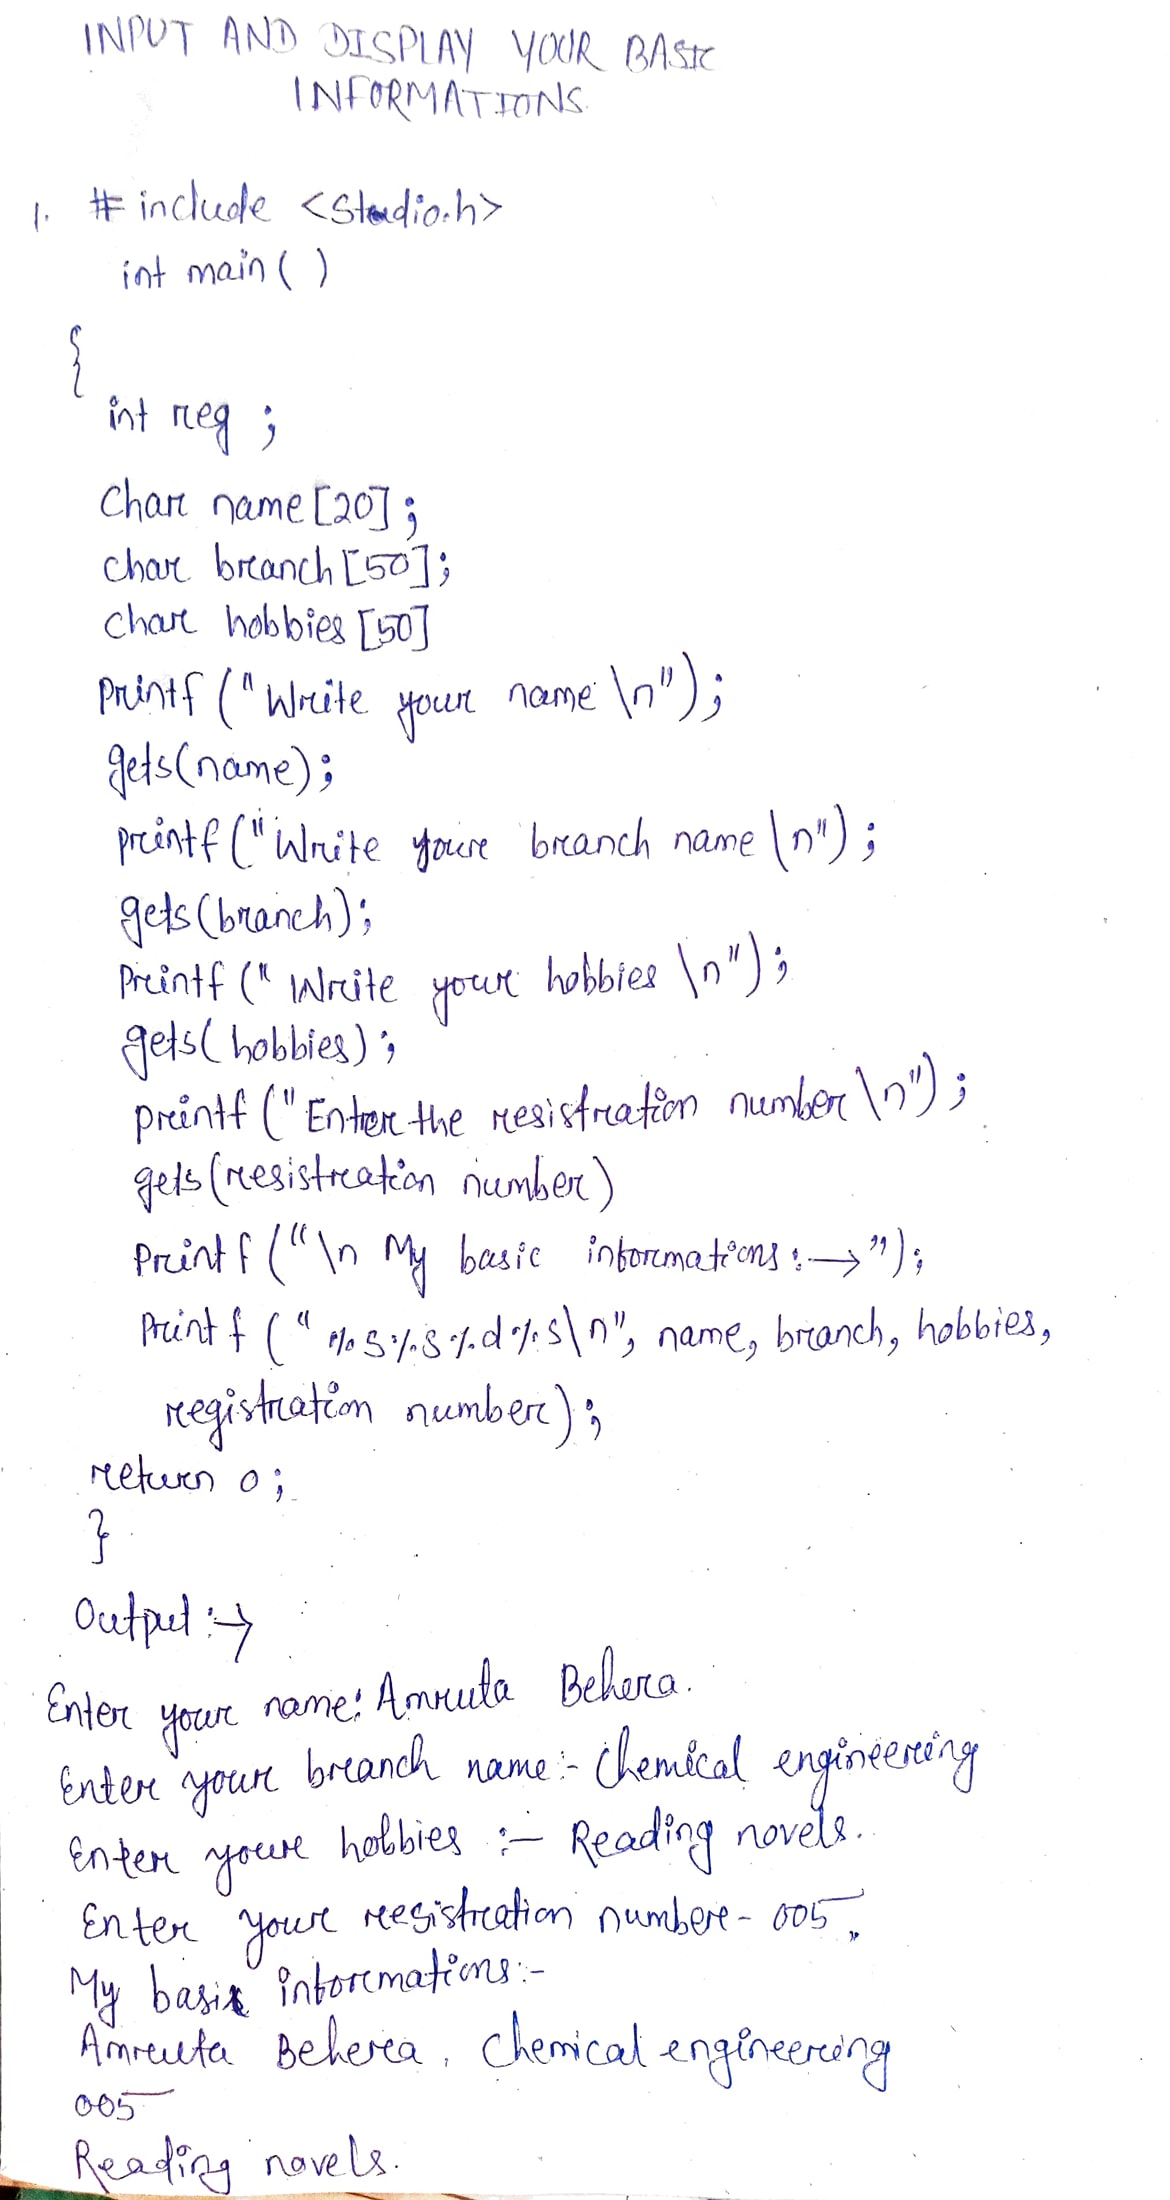 INPUT AND DISPLAY YOUR BASIC
INFORMATIONS.
1. #include <Stdio.h>
int main( )
{
int reg ;
Char name[20];
char branch[50];
char hobbies[50]
Printf ("Write your name \n");
gets(name);
printf ("Write your branch name \n");
gets(branch);
Printf (" Write your hobbies \n");
gets( hobbies) ;
printf ("Enter the resistration number \n");
gets (resistration number)
Printf ("\n My basic informations :→");
Print f ( "%s%s%d%s\n", name, branch, hobbies,
registration number) ;
return 0 ;
}
Output :→
Enter your name: Amruta Behera.
Enter your branch name:- Chemical engineering
Enter your hobbies :- Reading novels.
Enter your resistration number - 005.
My basic informations:-
Amruta Behera, Chemical engineering
005
Reading novels.